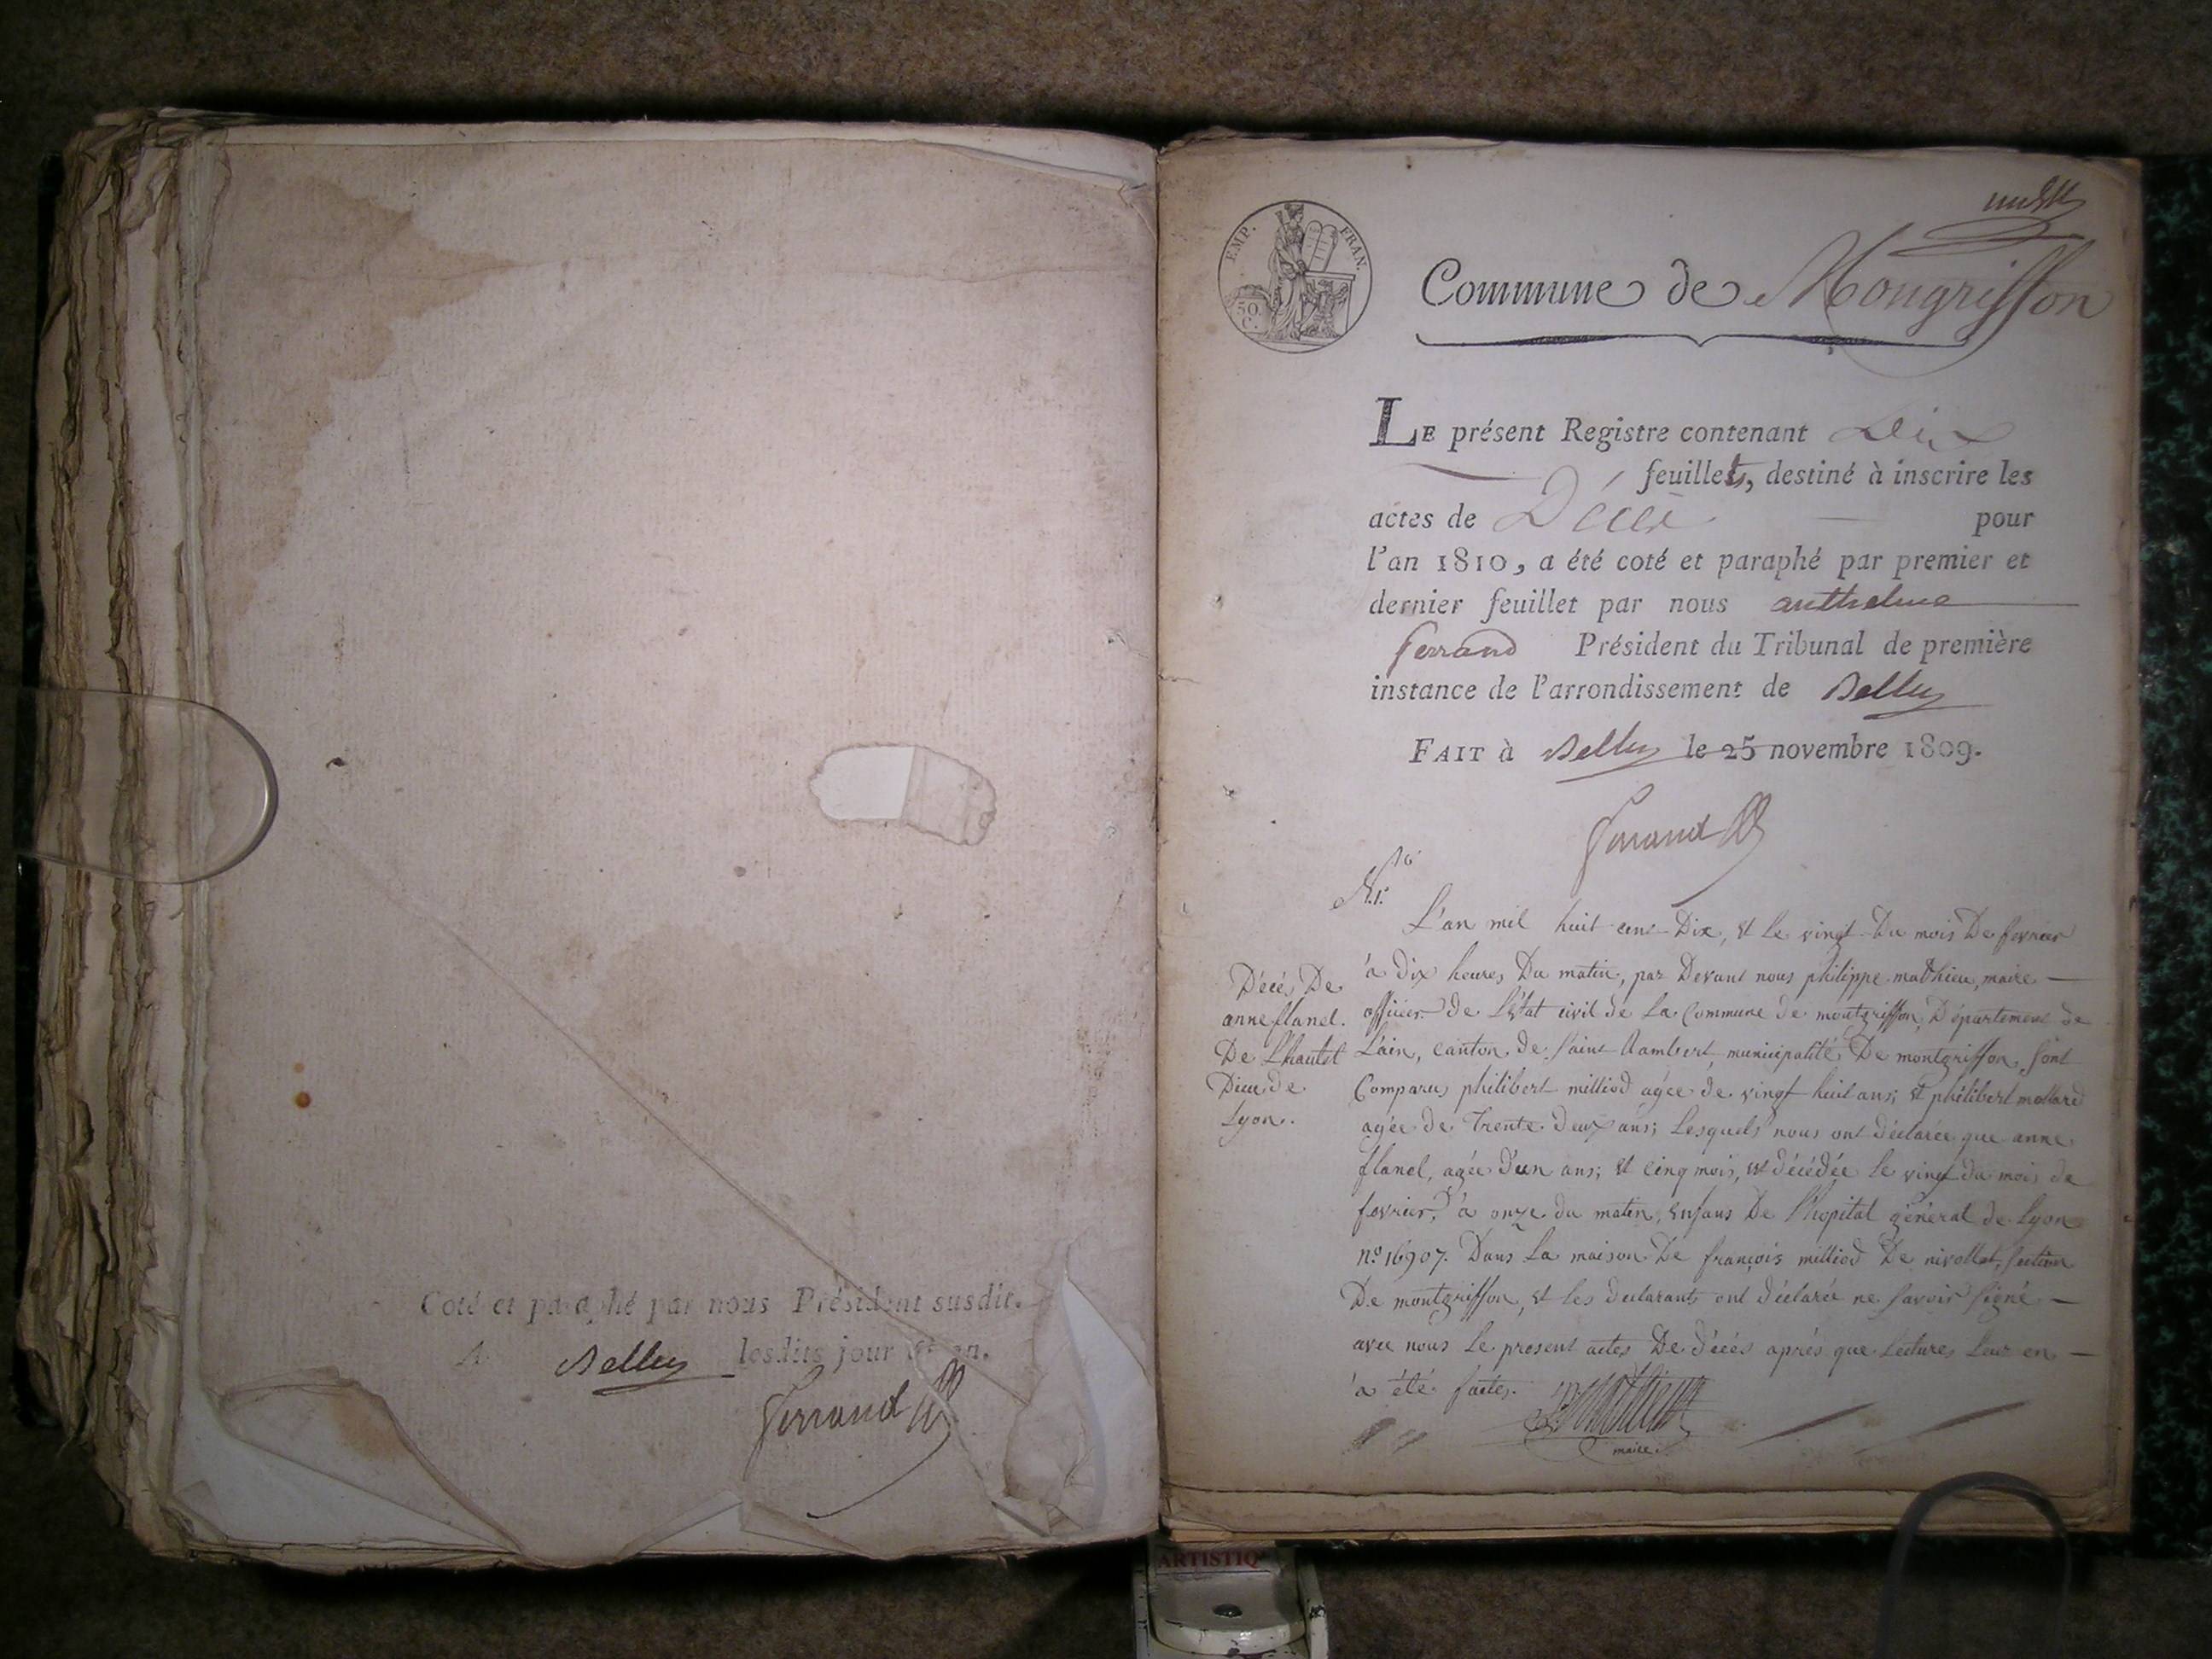 Coté et paraphé par nous Président susdit.
A Belley lesdits jour et an.
Ferrand
EMP. FRAN.
50 C.
Commune de Mongriffon
LE présent Registre contenant dix
feuillets, destiné à inscrire les
actes de Décès pour
l'an 1810, a été coté et paraphé par premier et
dernier feuillet par nous anthelme
ferrand Président du Tribunal de première
instance de l'arrondissement de Belley
FAIT à Belley le 25 novembre 1809.
Ferrand
N.o 1.r
Décès De
anne flanel.
De L'hautel
Dieu de
Lyon.
L'an mil huit cent Dix, et le vingt Du mois De fevrier
à dix heures Du matin, par Devant nous philippe mathieu, maire
officier De L'état civil de La Commune de montgriffon, Département de
L'ain, canton de saint Rambert, municipalité De montgriffon, sont
Comparus philibert milliod agée de vingt huit ans; et philibert mollard
agée de trente deux ans; Lesquels nous ont déclarée que anne
flanel, agée d'un ans; et cinq mois, est décédée le vingt du mois de
fevrier, à onze du matin, enfans De l'hopital général de Lyon
n.o 16907. Dans La maison De françois milliod De nivollet, section
De montgriffon, et les déclarants ont déclarée ne savoir signé
avec nous Le present actes De décès après que Lectures Leur en
a été faites.
mathieu
maire.
ARTISTIQ